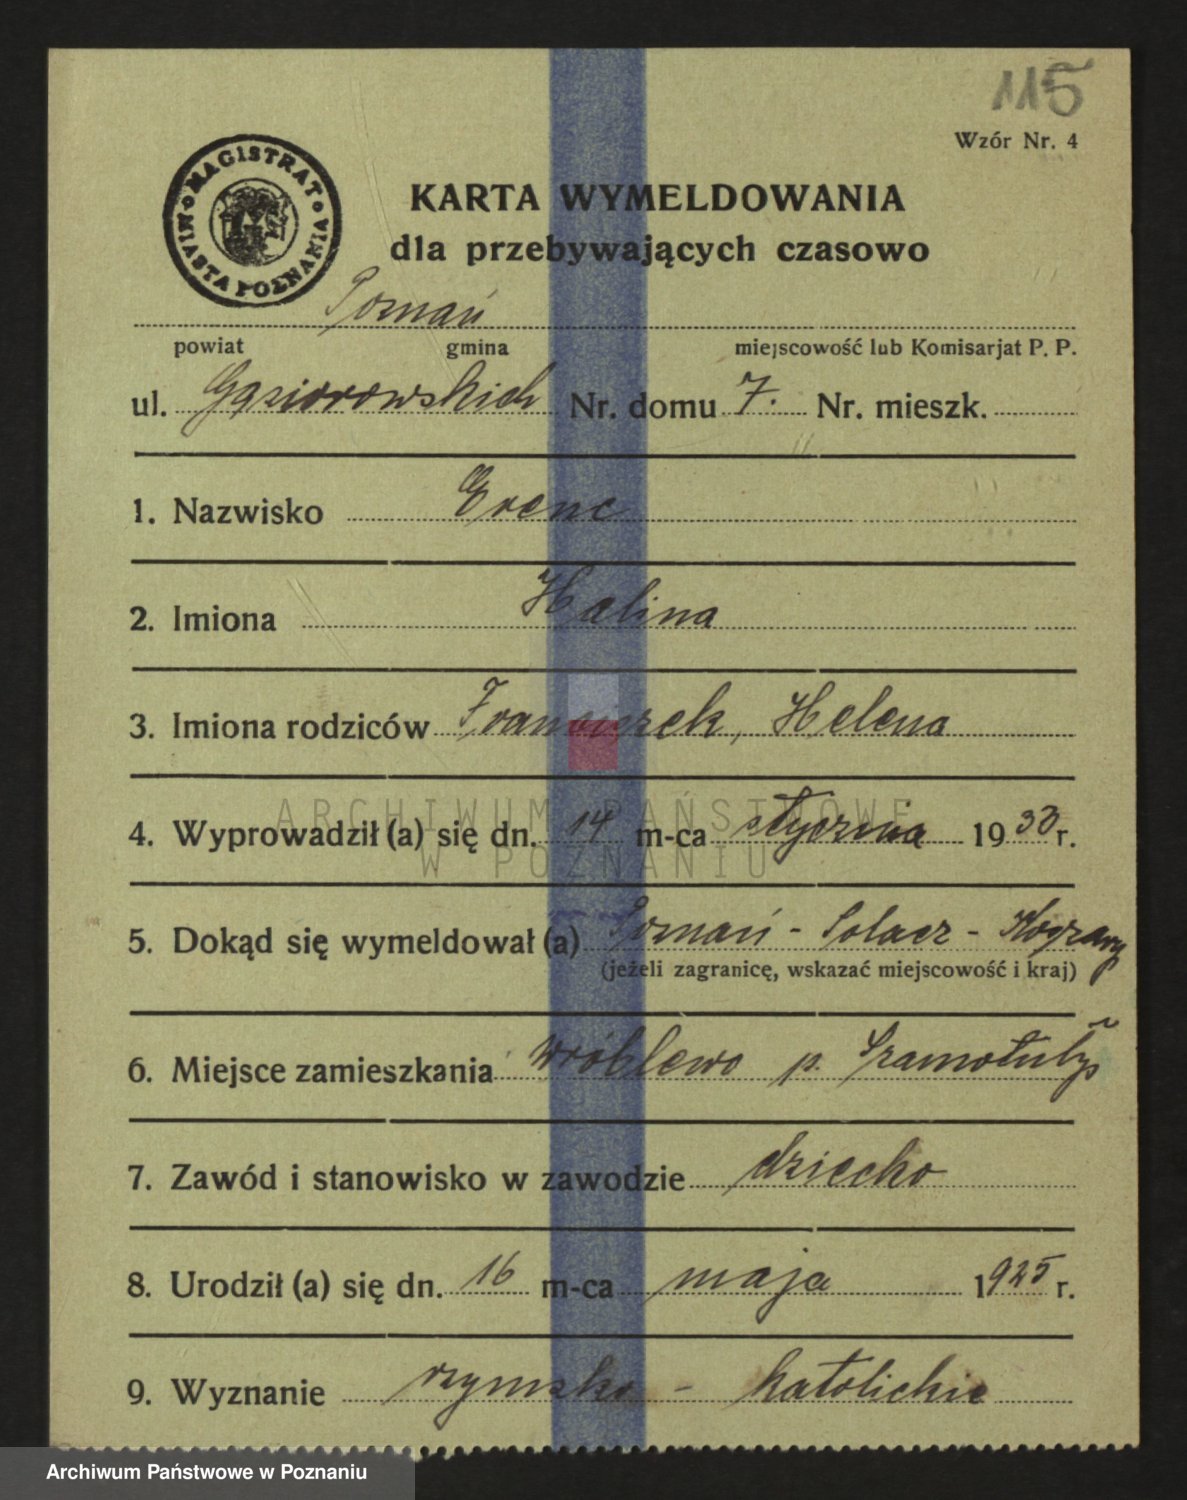 115
Wzór Nr. 4
MAGISTRAT MIASTA POZNANIA
KARTA WYMELDOWANIA
dla przebywających czasowo
Poznań
powiat gmina miejscowość lub Komisarjat P. P.
ul. Gąsiorowskich Nr. domu 7. Nr. mieszk.
1. Nazwisko Grenc
2. Imiona Halina
3. Imiona rodziców Franciszek, Helena
ARCHIWUM PAŃSTWOWE
4. Wyprowadził (a) się dn. 14 m-ca stycznia 1933 r.
W POZNANIU
5. Dokąd się wymeldował (a) Poznań - Sołacz -
(jeżeli zagranicę, wskazać miejscowość i kraj)
6. Miejsce zamieszkania Wróblewo p. Szamotuły
7. Zawód i stanowisko w zawodzie dziecko
8. Urodził (a) się dn. 16 m-ca maja 1925 r.
9. Wyznanie rzymsko - katolickie
Archiwum Państwowe w Poznaniu